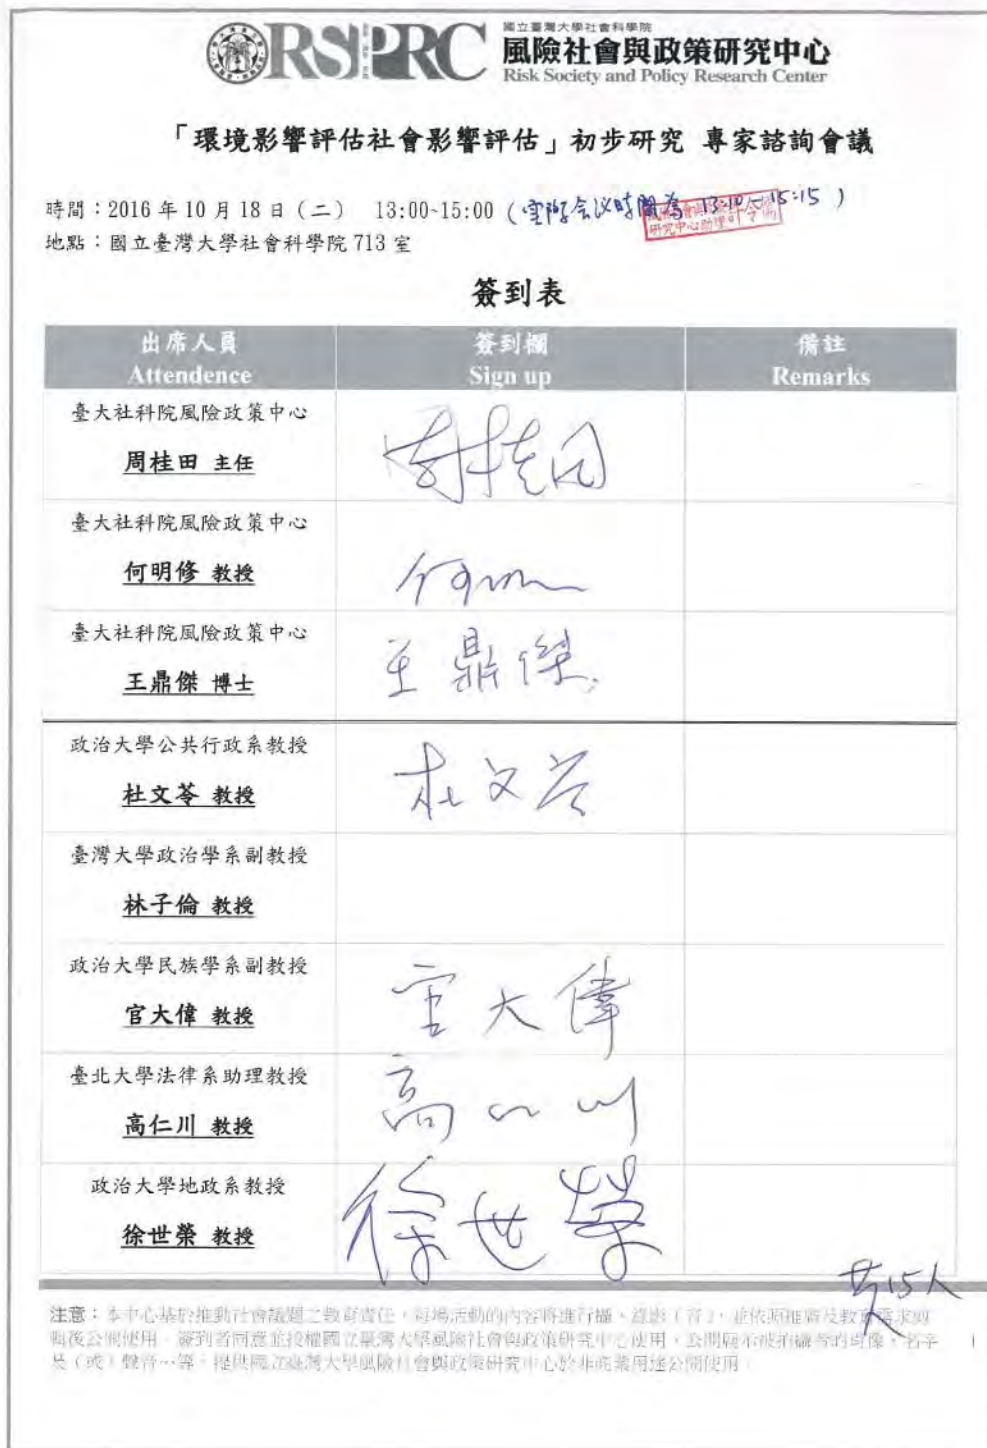 RSPRC
國立臺灣大學社會科學院
風險社會與政策研究中心
Risk Society and Policy Research Center
「環境影響評估社會影響評估」初步研究 專家諮詢會議
時間：2016 年 10 月 18 日（二） 13:00~15:00（實際会议時間為 13:10~15:15）
研究中心助理
地點：國立臺灣大學社會科學院 713 室
簽到表
出席人員 簽到欄 備註
Attendence Sign up Remarks
臺大社科院風險政策中心
周桂田 主任 周桂田
臺大社科院風險政策中心
何明修 教授 何明修
臺大社科院風險政策中心
王鼎傑 博士 王鼎傑
政治大學公共行政系教授
杜文苓 教授 杜文苓
臺灣大學政治學系副教授
林子倫 教授
政治大學民族學系副教授
官大偉 教授 官大偉
臺北大學法律系助理教授
高仁川 教授 高仁川
政治大學地政系教授
徐世榮 教授 徐世榮
共15人
注意：本中心基於推動社會議題之教育責任，每場活動的內容將進行攝、錄影（音），並依照推廣及教育需求剪
輯後公開使用。簽到者同意並授權國立臺灣大學風險社會與政策研究中心使用、公開展示被拍攝者的肖像、名字
及（或）聲音…等，提供國立臺灣大學風險社會與政策研究中心於非商業用途公開使用